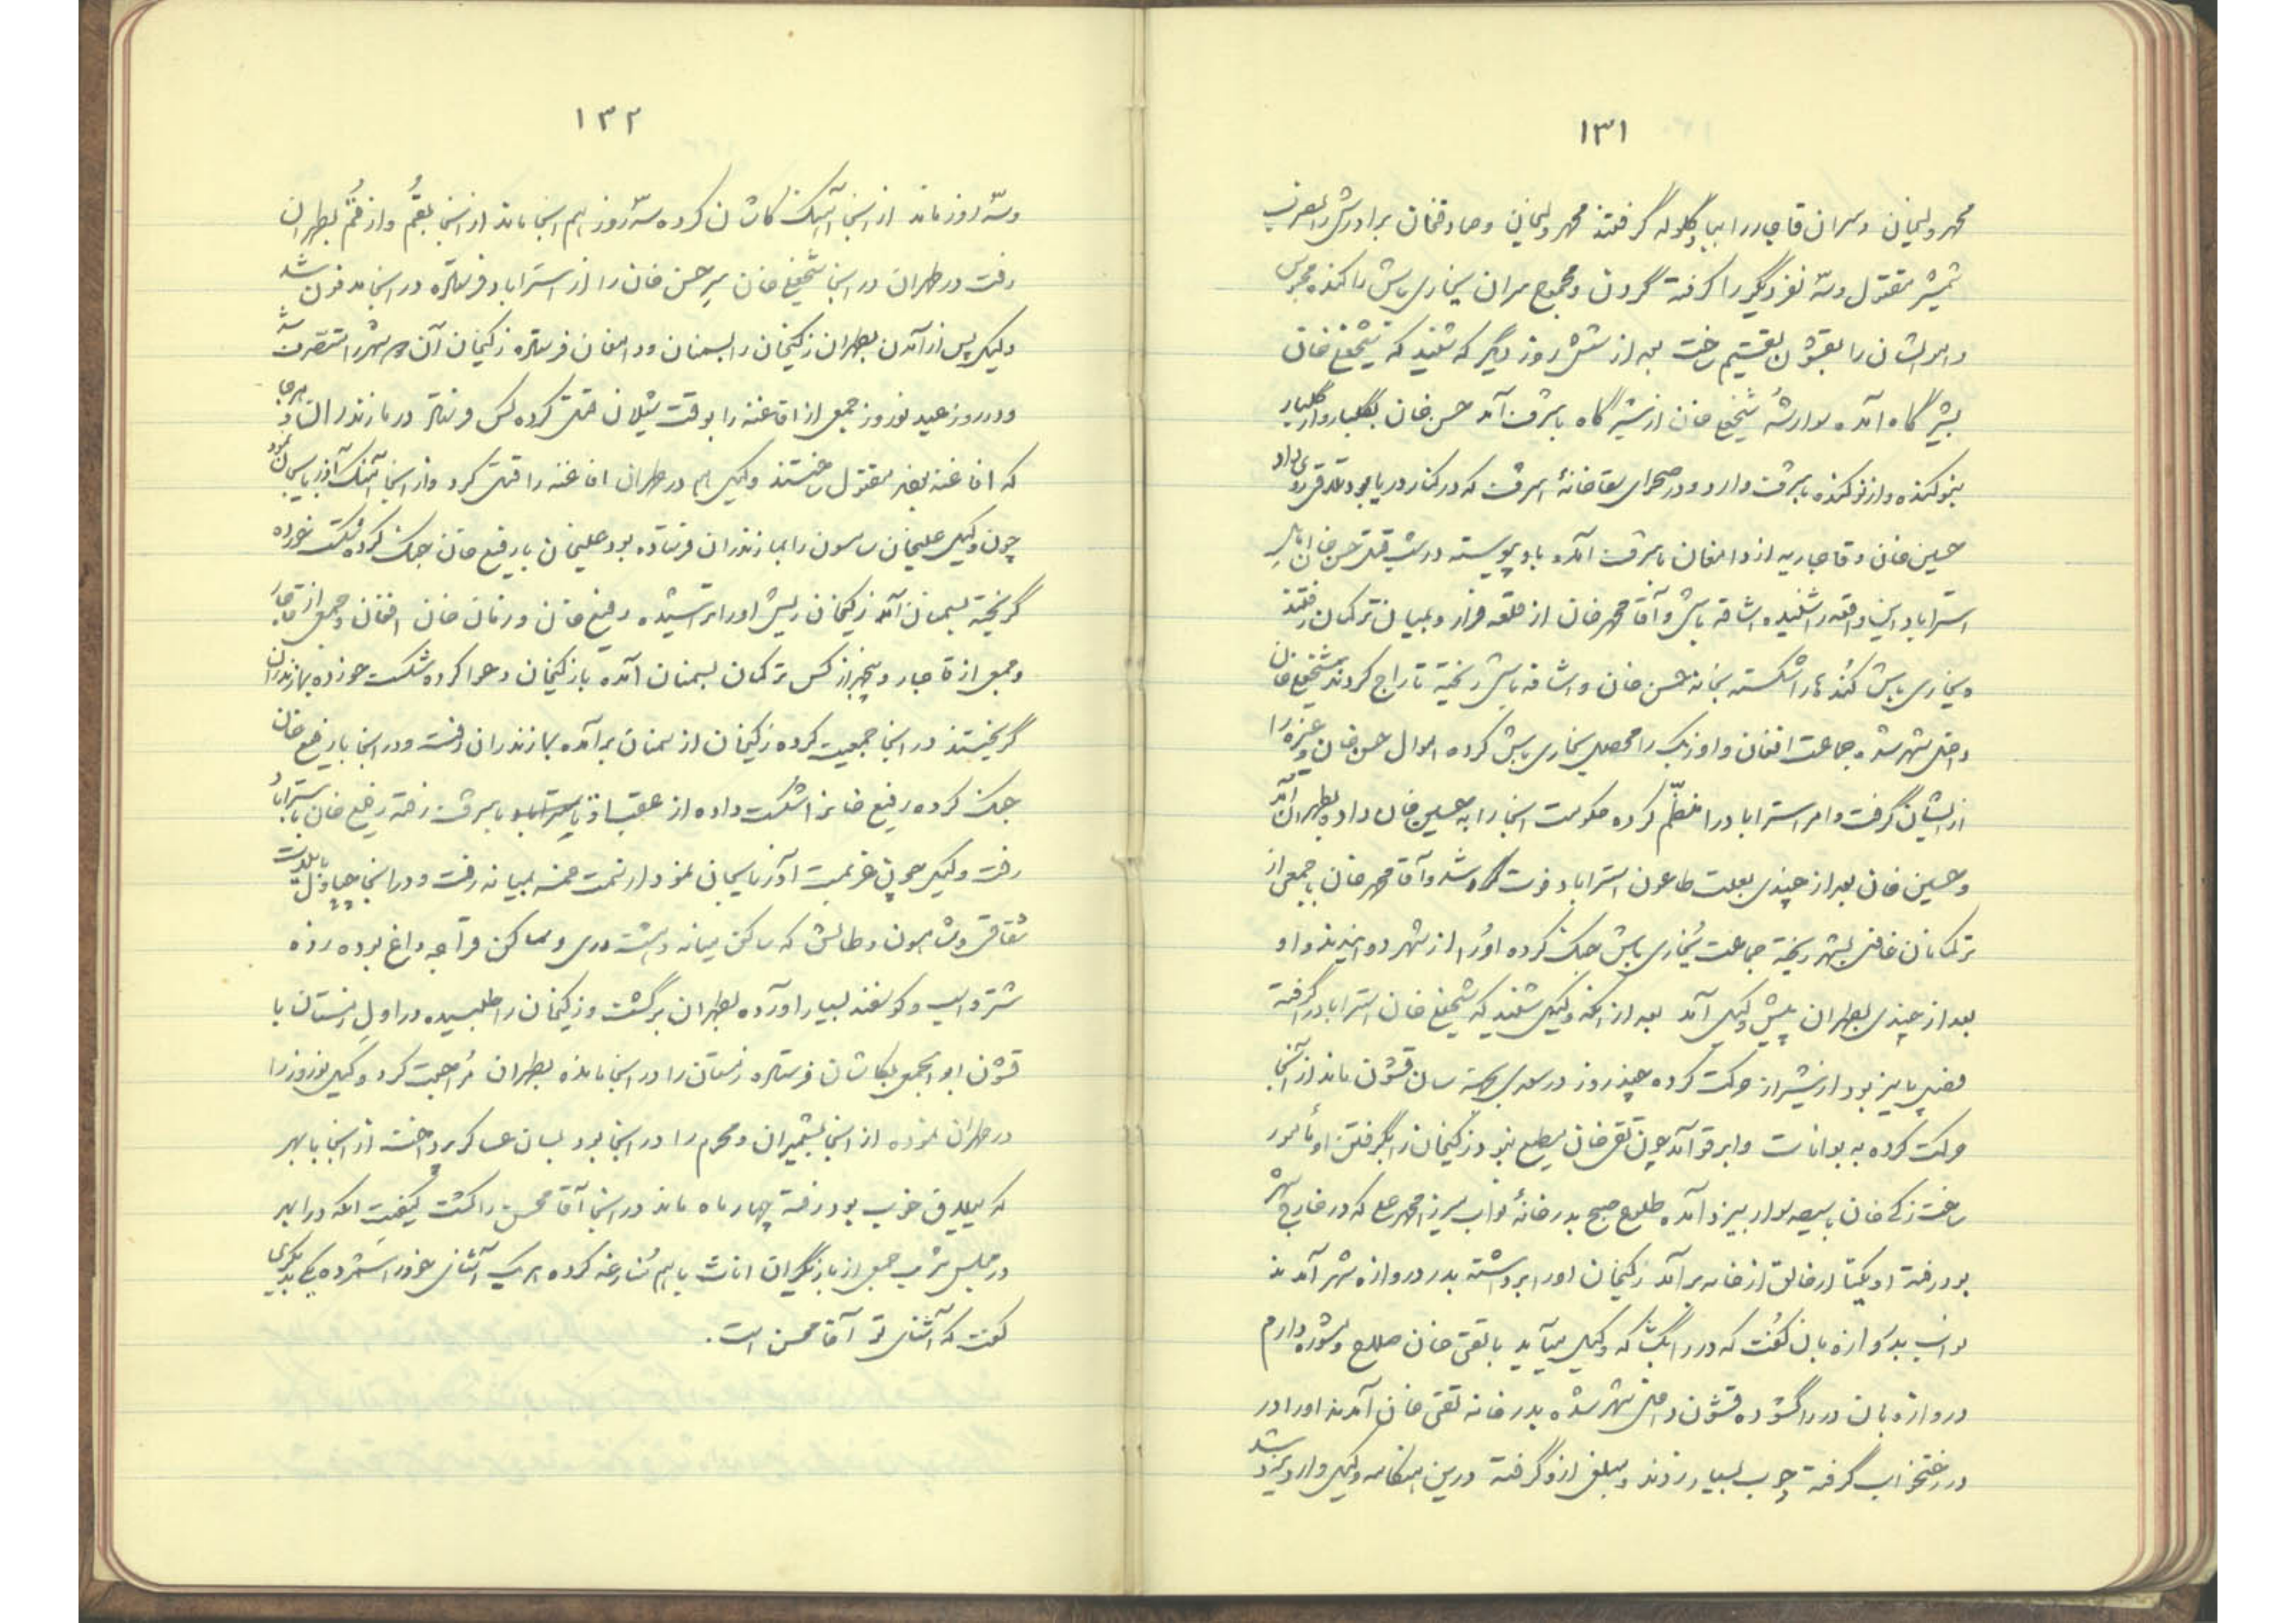 ۱۳۱
محمد ولیخان و سران قاجار را بباد گلوله گرفتند محمد ولیخان و صادقخان برادرش را بضرب
شمشیر مقتول و سه نفر دیگر را گرفته گردن و مجموع سران یخاری باش را کنده محبوس
و اموالشان را بقشون تقسیم ساخت بعد از شش روز دیگر که شنید که شیخعلیخان
بشیرگاه آمده سوار شد شیخعلی خان از شیرگاه باشرف آمد حسن خان بگلباد و از گلباد
بنوکنده و از نوکنده باشرف وارد و در صحرای سقاخانهٔ اشرف که در کنار دریا بود تلاقی روی داد
حسین خان و قاجاریه از دامغان باشرف آمده باو پیوسته در شب قتل حسن خان
استراباد این واقعه را شنیده اشاقه باش و آقا محمد خان از قلعه فرار و بمیان ترکمان رفتند
و یخاری باش کنده‌ها را شکسته بخانه حسن خان و اشاقه باش ریخته تاراج کردند شیخعلی خان
داخل شهر شد و جماعت افغان و اوزبک را محصل یخاری باش کرده اموال حسن خان و غیره را
از ایشان گرفت و امر استراباد را منظم کرده حکومت اینجا را به حسین خان داده بطهران آمد
و حسین خان بعد از چندی بعلت طاعون استراباد فوت شد و آقا محمد خان با جمعی از
ترکمانان غافل بشهر ریخته جماعت یُخاری باش جنک کرده او را از شهر دوانیدند و او
بعد از چندی بطهران پیش وکیل آمد بعد از آنکه وکیل شنید که شیخعلی خان استراباد را گرفته
فصل پاییز بود از شیراز حرکت کرده چند روز در بجهة سان قشون ماند از آنجا
حرکت کرده به بوانات و ابرقو آمد چون تقی خان مطیع نبود زکیخان را بگرفتن او مأمور
ساخت زکی خان با سیصد سوار بیزد آمده طلوع صبح بدر خانهٔ نواب میرزا محمد علی که در خارج شهر
بود رفته او یکتا ارخالق از خانه برآمد زکیخان او را برداشته بدر دروازه شهر آمدند
نواب بدروازه بان گفت که در را بگشا که وکیل میآید با تقی خان صلاح و شوره دارم
دروازه بان در را گشوده قشون داخل شهر شده بدر خانه تقی خان آمدند او را در
در رختخواب گرفته چوب بسیار زدند و مبلغی ازو گرفته درین هنگامه وکیل وارد یزد شد
۱۳۲
و سه روز ماند از اینجا آهنک کاشان کرده سه روز هم اینجا ماند از اینجا بقُم و از قُم بطهران
رفت در طهران در اینجا شیخعلی خان سر حسن خان را از استراباد فرستاده در اینجا مدفون شد
وکیل پس از آمدن بطهران زکیخان را بسمنان و دامغان فرستاده زکیخان آن دو شهر را متصرف شد
و در روز عید نوروز جمعی از افاغنه را بوقت شیلان قتل کرده کس فرستاد در مازندران و هر جا
که افاغنه بودند مقتول ساختند وکیل هم در طهران افاغنه را قتل کرد و از اینجا آهنک آذربایجان نمود
چون وکیل علیخان شاهسون را بمازندران فرستاده بود علیخان با رفیع خان جنک کرده شکست خورده
گریخته بسمنان آمد زکیخان ریش او را تراشیده رفیع خان و زمان خان افغان و جمعی از قاجار
و جمعی از قاجار و پنجهزار کس ترکمان بسمنان آمده با زکیخان دعوا کرده شکست خورده بمازندران
گریختند در اینجا جمعیت کرده زکیخان از سمنان برآمده بمازندران رفت و در اینجا با رفیع خان
جنک کرده رفیع خان را شکست داده از عقب او باشرف رفته رفیع خان باستراباد
رفت وکیل چون عزیمت آذربایجان نمود از سمت خمسه بمیانه رفت و در اینجا چپاول بایلات
شقاقی و شاهسون و طالش که ساکن میانه و هشت‌رود و ساکن قراجه داغ بوده زده
شتر و اسب و کوسفند بسیار آورده بطهران برگشت و زکیخان را طلبیده در اول زمستان با
قشون ابوابجمعی بکاشان فرستاده زمستان را در اینجا مانده بطهران مُراجعت کرد وکیل نوروز را
در طهران نموده از اینجا بشمیران و محرم را در اینجا بود بسان عساکر پرداخت از اینجا بابهر
که ییلاق خوب بود رفته چهار ماه ماند در اینجا آقا محسن را کشت کیفیت آنکه در ابهر
در مجلس شراب جمعی از بازیگران اناث با هم مُنازعه کرده هر یک آشنای خود را شمرده یکی بدیگری
گفت که آشنای تو آقا محسن است.